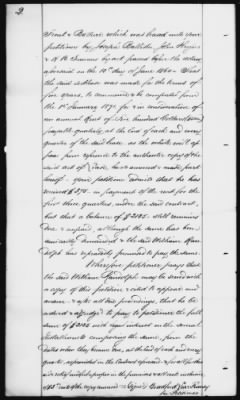 2
& Ballier, which was made unto your
petitioner by Joseph Ballier, John
& W. B. by act passed before the notary
aforesaid on the 18th day of June 1860 - That
the said said lease was made for the term of
five years, to commence & be computed from
the 1st January 18 for & in consideration of
an annual rent of Five hundred Dollars
payable quarterly, at the end of each and every
quarter of the said lease as the whole will ap
pear from reference to the authentic copy of the
said act of lease, here annexed & made part
hereof - Your petitioner admits that he has
received $ in payment of the rent for the
first three quarters, under the said contract,
but that a balance of $2125 still remains
due & unpaid, although the same has been
amicably demanded & the said William Ran
dolph has repeatedly promised to pay the same.
Wherefore petitioner prays that
the said William Randolph may be served with
a copy of this petition & cited to appear and
answer & after all due proceedings, that he be
ordered & adjudged to pay to petitioner the full
sum of $2125 with legal interest on the several
installments composing the same, from the
dates when they became due, at the end of each and every
quarter, as provided in the contract aforesaid, & for all further
and relief in the premises & as in